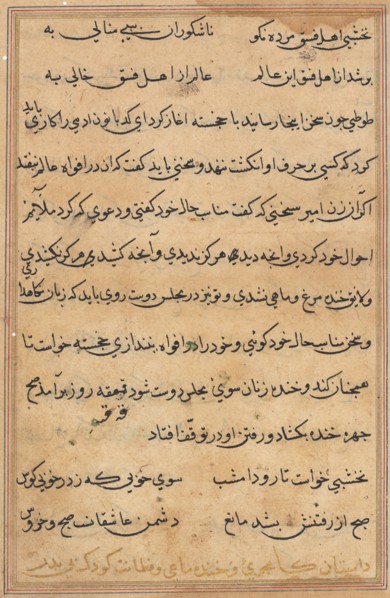 نخشبی اهل فسق مرده نکو ناشکوران بسی منالی به
بر شد از اهل فسق این عالم عالم از اهل فسق خالی به
طوطی چون سخن اینجا رسانید با خجسته اغاز کرد ای کدبانو ادمی را کاری باید
کرد که کسی بر حرف او انگشت ننهد و سخنی باید گفت که ان در افواه عالم نیفتد
اگر ان زن امیر سخنی که گفت مناسب حال خود گفتی و دعوی که کرد ملایم
احوال خود کردی و انچه دیدی هرگز ندیدی و آنچه کشیدی هرگز نکشیدی
و لایق خنده مرغ و ماهی نشدی و تو نیز در مجلس دوست روی باید که زبان نگاهداری
و سخن مناسب حال خود گوئی و خود را در افواه نیندازی خجسته خواست تا
همچنان کند و خنده زنان سوی مجلس دوست شود قهقهه روز برآمد صبح
چهره خنده بکشاد و رفتن او در توقف افتاد
نخشبی خواست تا رود امشب سوی خوبی که زد در خوبی کوس
صبح از رفتنش بشد مانع دشمن عاشقانست صبح و خروس
داستان کامجوی و خنده ماهی و فطانت کودک بی پدر